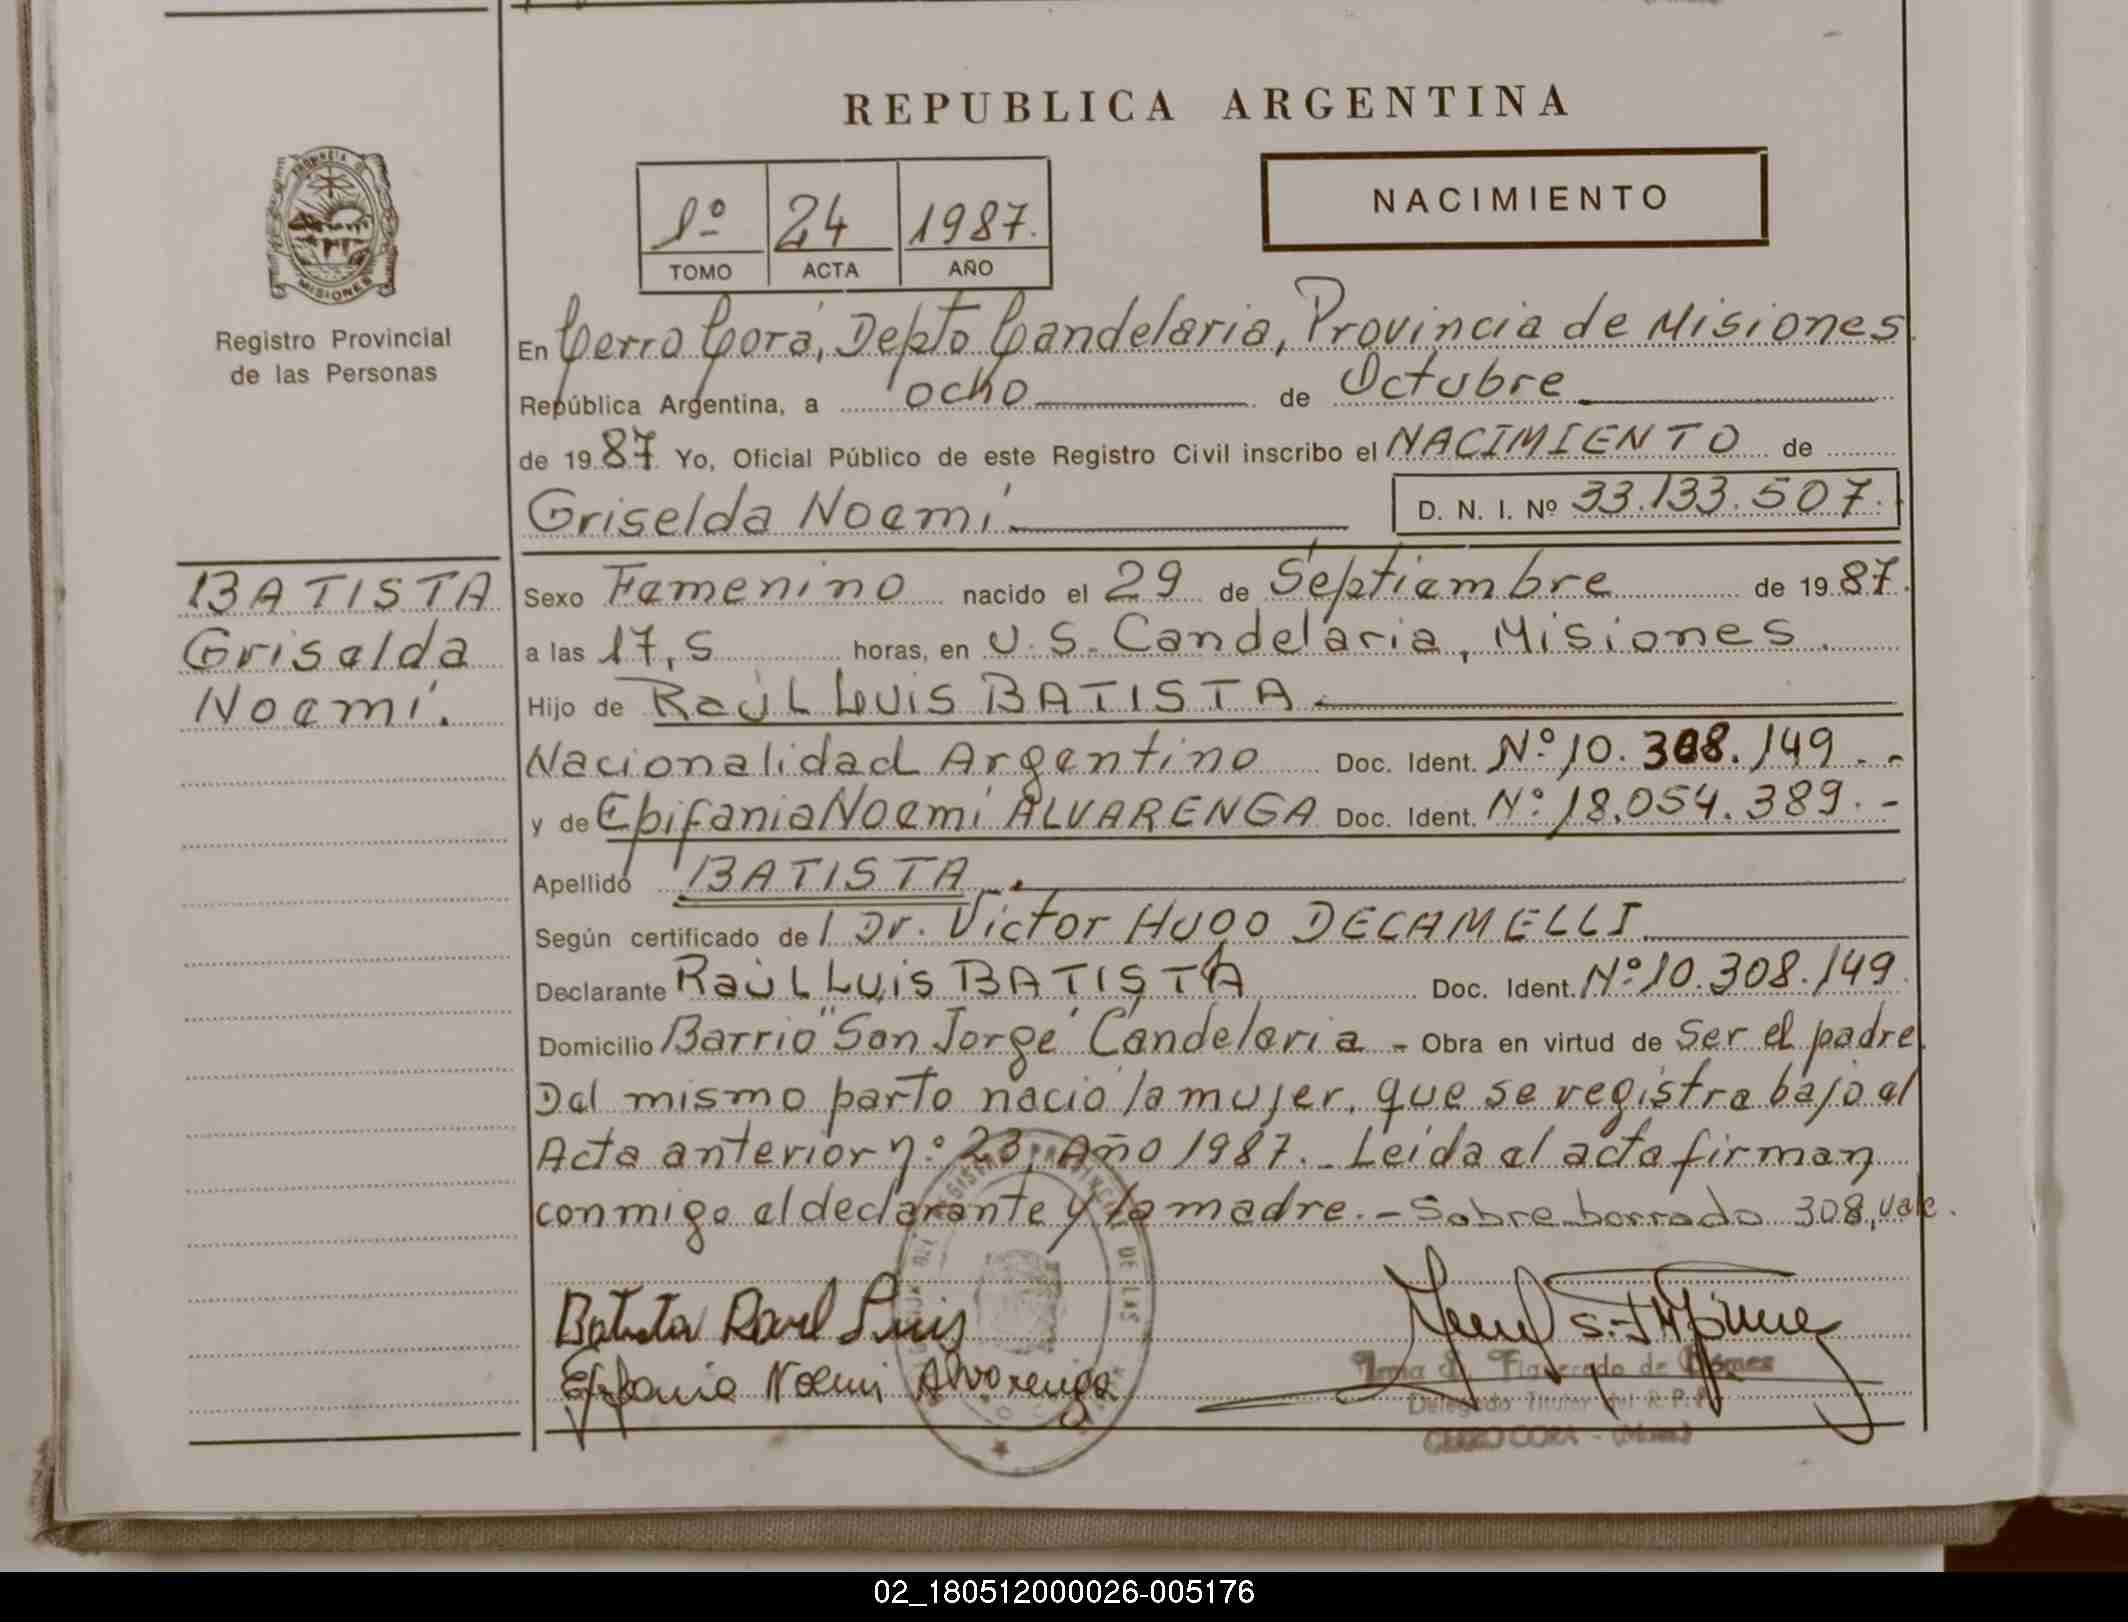 REPUBLICA ARGENTINA
1º 24 1987.
TOMO ACTA AÑO
NACIMIENTO
PROVINCIA D
MISIONES
Registro Provincial
de las Personas
En Cerro Corá, Depto Candelaria, Provincia de Misiones
República Argentina, a ocho de Octubre
de 1987. Yo, Oficial Público de este Registro Civil inscribo el NACIMIENTO de
Griselda Noemí D. N. I. Nº 33.133.507.
BATISTA
Griselda
Noemí.
Sexo Femenino nacido el 29 de Septiembre de 1987.
a las 17,5 horas, en U.S. Candelaria, Misiones.
Hijo de Raúl Luis BATISTA
Nacionalidad Argentino Doc. Ident. Nº 10.308.149.-
y de Epifania Noemí ALVARENGA Doc. Ident. Nº 18.054.389.-
Apellido BATISTA.
Según certificado de Dr. Víctor HUGO DECAMELLI
Declarante Raúl Luis BATISTA Doc. Ident. Nº 10.308.149.
Domicilio Barrio "San Jorge" Candelaria - Obra en virtud de Ser el padre.
Del mismo parto nació la mujer, que se registra bajo el
Acta anterior nº 23, Año 1987.- Leída el acta firman
conmigo el declarante y la madre.- Sobre borrado 308, vale.
Batista Raul Luis
Epifania Noemi Alvarenga
DE LAS
Irma S. Figueredo de Gómez
Delegado Titular del R.P.P.
CERRO CORA - (Mnes)
02_180512000026-005176